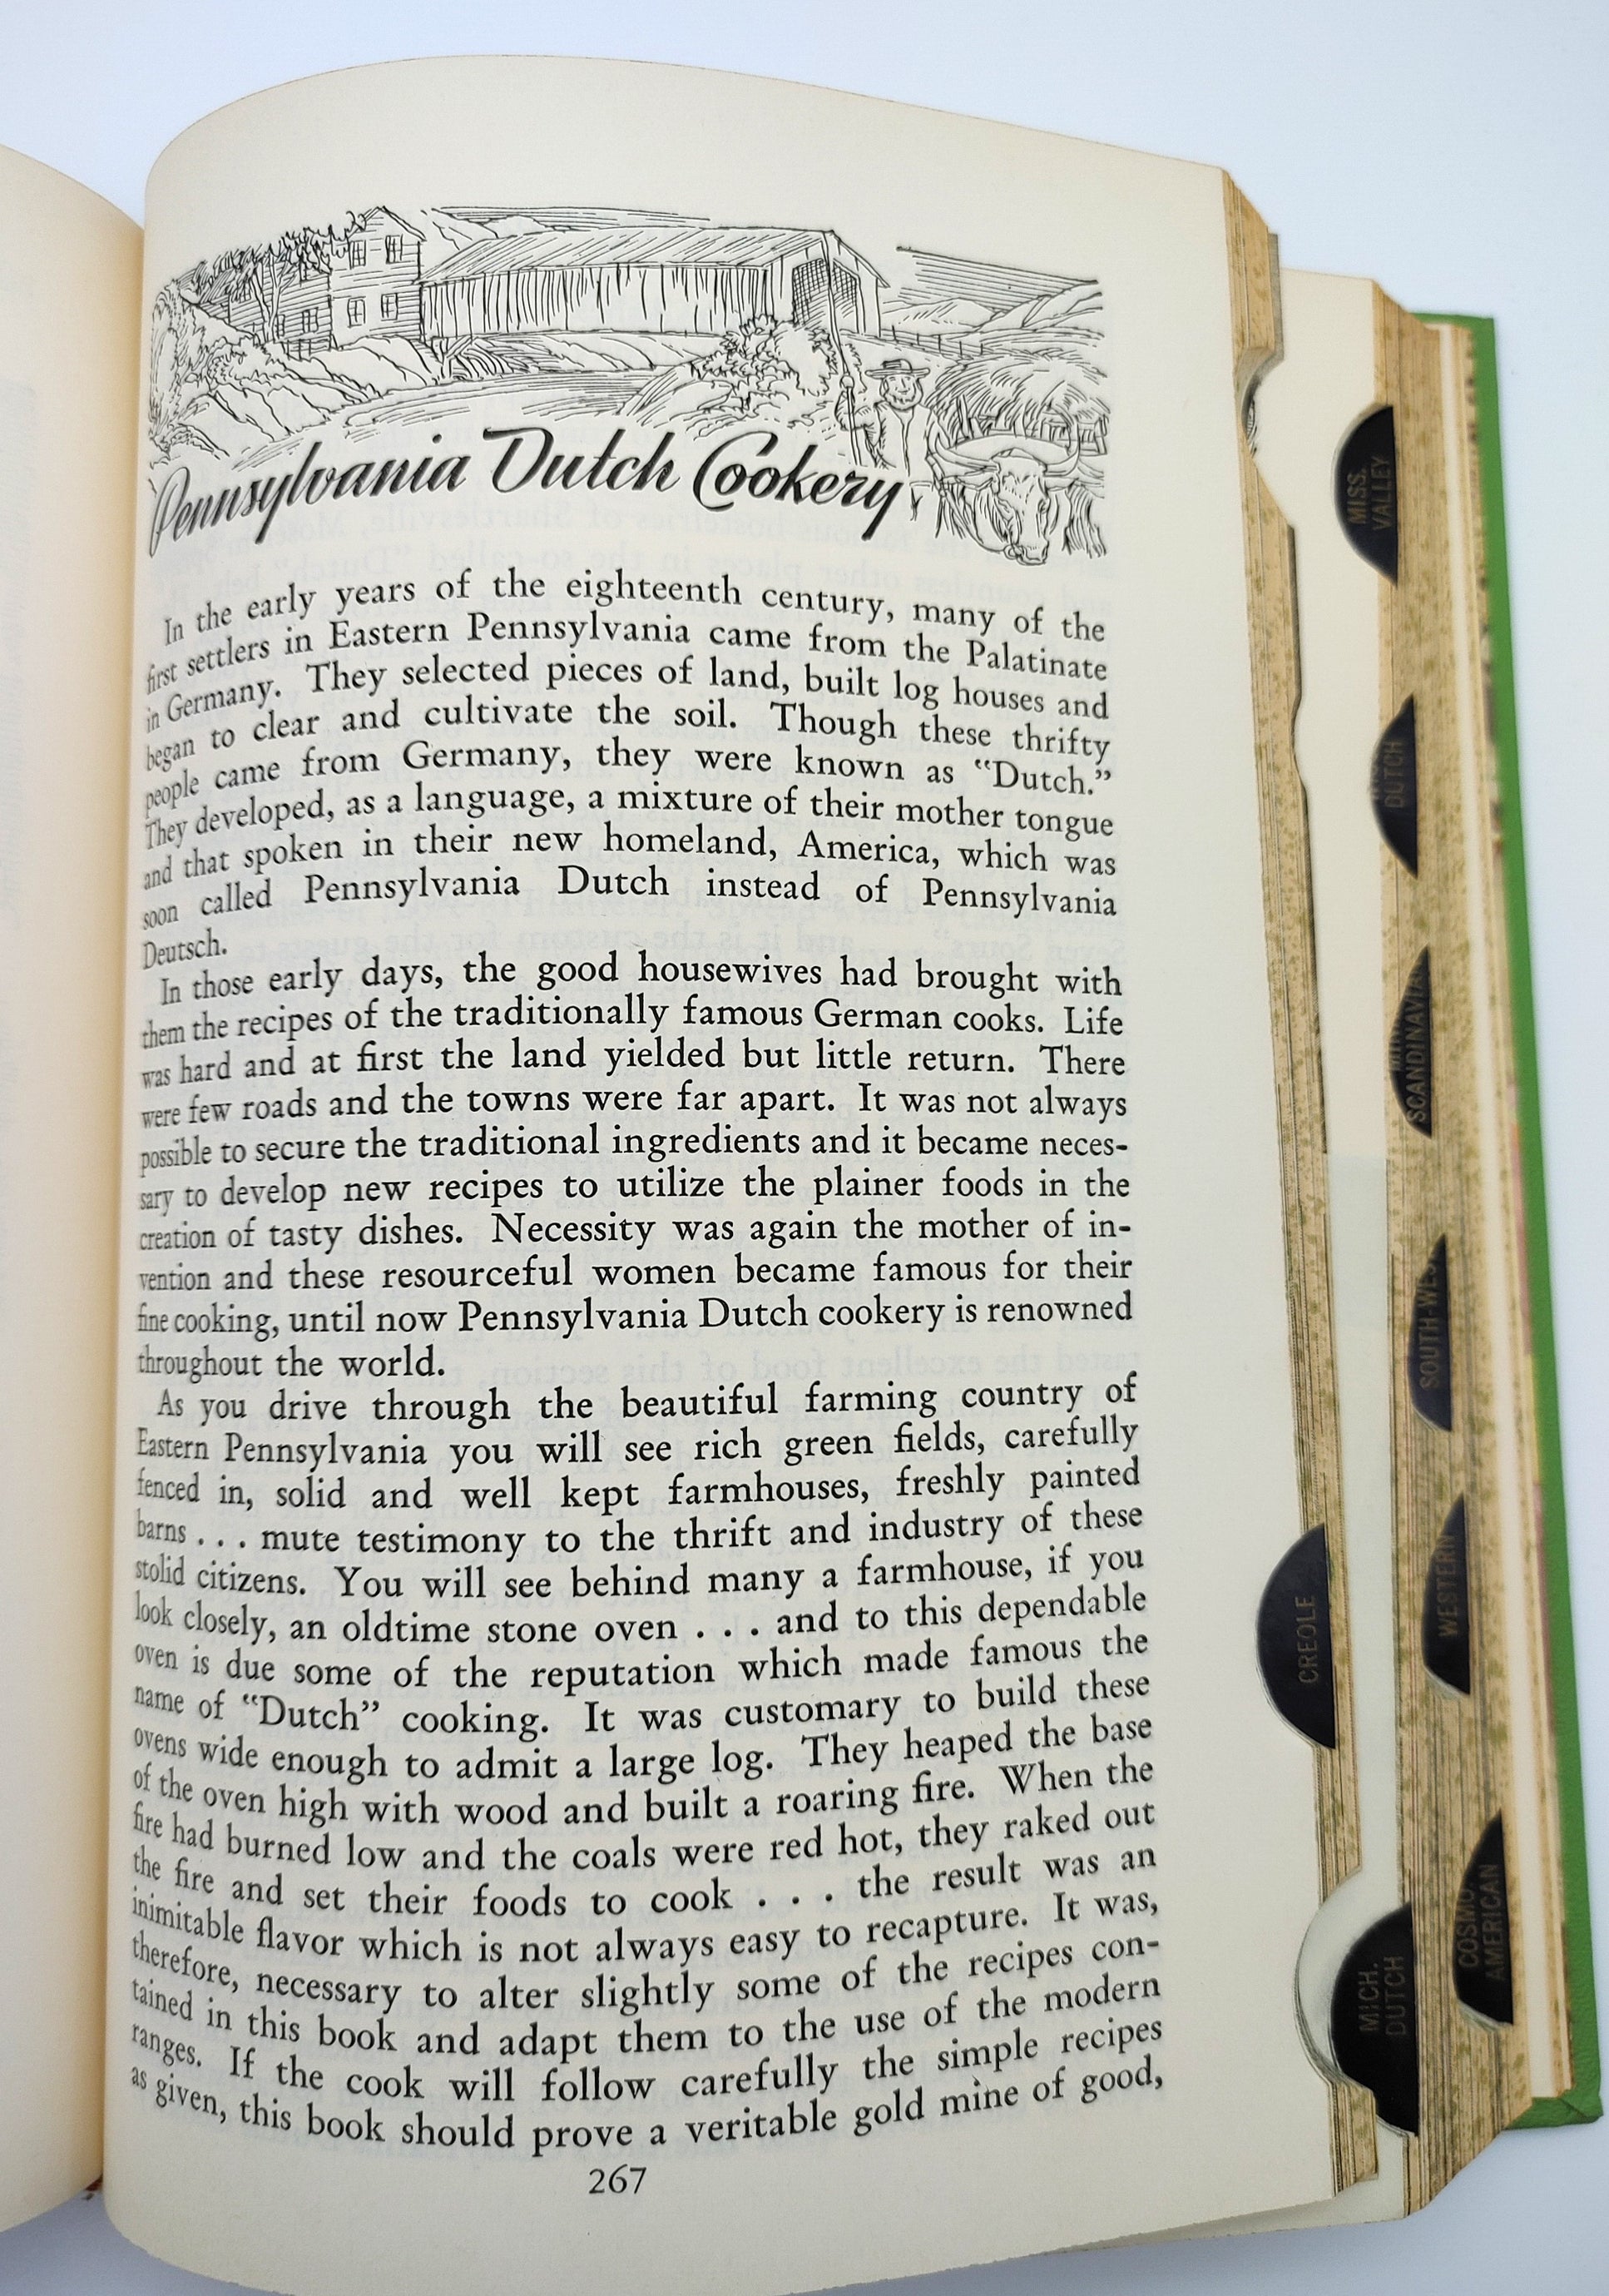 Pennsylvania Dutch Cookery
In the early years of the eighteenth century, many of the
first settlers in Eastern Pennsylvania came from the Palatinate
in Germany. They selected pieces of land, built log houses and
began to clear and cultivate the soil. Though these thrifty
people came from Germany, they were known as “Dutch.”
They developed, as a language, a mixture of their mother tongue
and that spoken in their new homeland, America, which was
soon called Pennsylvania Dutch instead of Pennsylvania
Deutsch.
In those early days, the good housewives had brought with
them the recipes of the traditionally famous German cooks. Life
was hard and at first the land yielded but little return. There
were few roads and the towns were far apart. It was not always
possible to secure the traditional ingredients and it became neces-
sary to develop new recipes to utilize the plainer foods in the
creation of tasty dishes. Necessity was again the mother of in-
vention and these resourceful women became famous for their
fine cooking, until now Pennsylvania Dutch cookery is renowned
throughout the world.
As you drive through the beautiful farming country of
Eastern Pennsylvania you will see rich green fields, carefully
fenced in, solid and well kept farmhouses, freshly painted
barns . . . mute testimony to the thrift and industry of these
stolid citizens. You will see behind many a farmhouse, if you
look closely, an oldtime stone oven . . . and to this dependable
oven is due some of the reputation which made famous the
name of “Dutch” cooking. It was customary to build these
ovens wide enough to admit a large log. They heaped the base
of the oven high with wood and built a roaring fire. When the
fire had burned low and the coals were red hot, they raked out
the fire and set their foods to cook . . . the result was an
inimitable flavor which is not always easy to recapture. It was,
therefore, necessary to alter slightly some of the recipes con-
tained in this book and adapt them to the use of the modern
ranges. If the cook will follow carefully the simple recipes
as given, this book should prove a veritable gold mine of good,
267
MISS.
VALLEY
DUTCH
SCANDINAVIA
SOUTH-WES
WESTERN
CREOLE
COSMO.
AMERICAN
MICH.
DUTCH